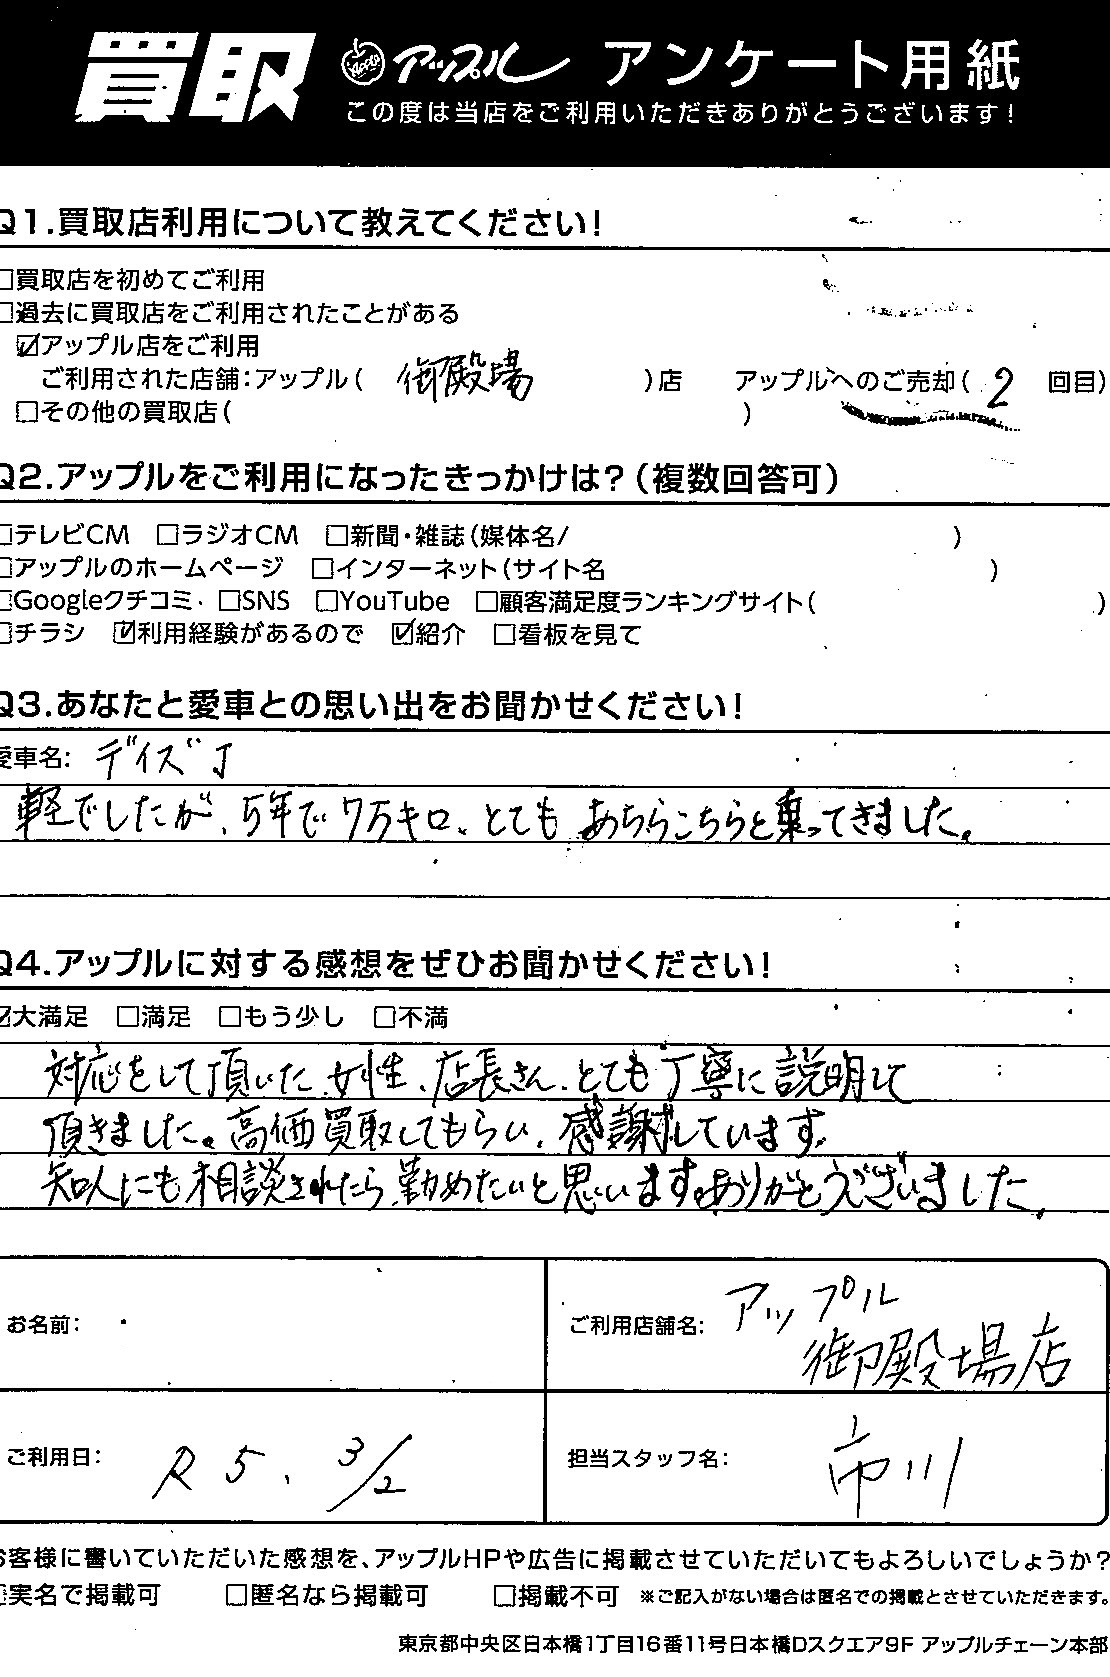 買取 APPLE アップル アンケート用紙
この度は当店をご利用いただきありがとうございます!
Q1.買取店利用について教えてください!
□買取店を初めてご利用
□過去に買取店をご利用されたことがある
☑アップル店をご利用
ご利用された店舗:アップル( 御殿場 )店 アップルへのご売却( 2 回目)
□その他の買取店( )
Q2.アップルをご利用になったきっかけは?(複数回答可)
□テレビCM □ラジオCM □新聞・雑誌(媒体名/ )
□アップルのホームページ □インターネット(サイト名 )
□Googleクチコミ □SNS □YouTube □顧客満足度ランキングサイト( )
□チラシ ☑利用経験があるので ☑紹介 □看板を見て
Q3.あなたと愛車との思い出をお聞かせください!
愛車名: デイズ J
軽でしたが、5年で7万キロ、とても あちらこちらと乗ってきました。
Q4.アップルに対する感想をぜひお聞かせください!
☑大満足 □満足 □もう少し □不満
対応をして頂いた女性、店長さん、とても丁寧に説明して
頂きました。高価買取してもらい、感謝しています。
知人にも相談されたら勤めたいと思います。ありがとうございました。
お名前: ご利用店舗名: アップル
御殿場店
ご利用日: R5. 3/2 担当スタッフ名: 市川
お客様に書いていただいた感想を、アップルHPや広告に掲載させていただいてもよろしいでしょうか?
□実名で掲載可 □匿名なら掲載可 □掲載不可 ※ご記入がない場合は匿名での掲載とさせていただきます。
東京都中央区日本橋1丁目16番11号日本橋Dスクエア9F アップルチェーン本部